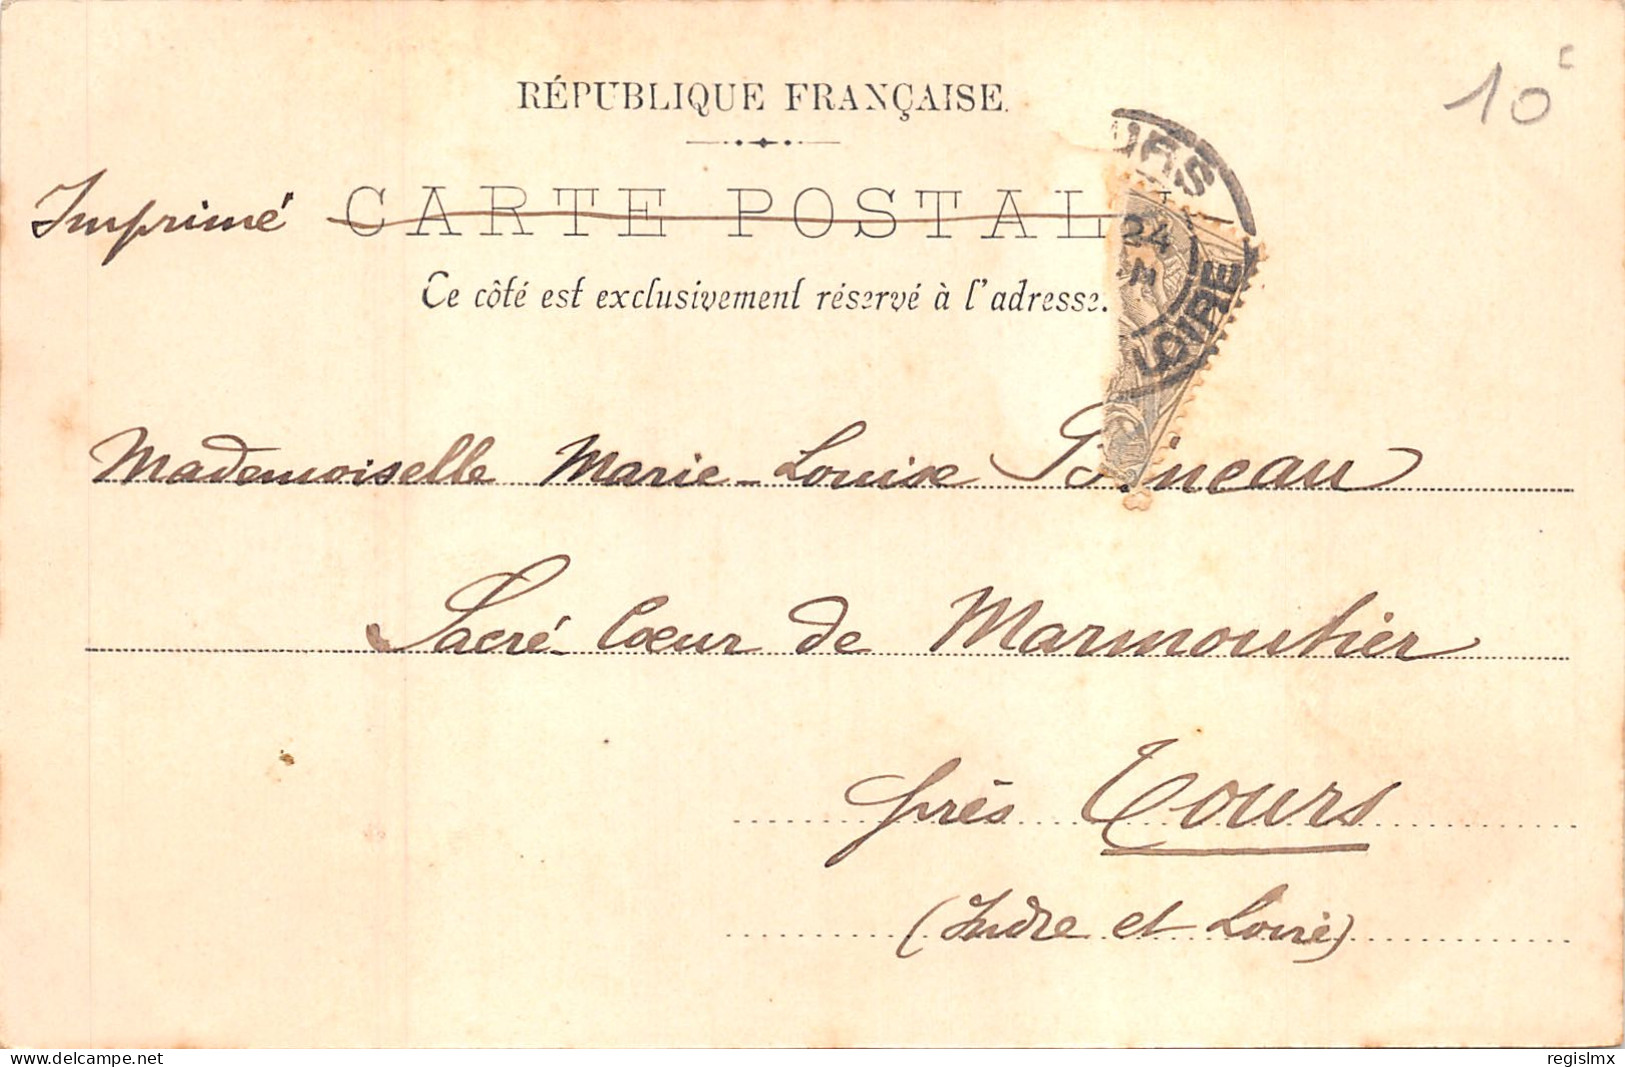 10 c
RÉPUBLIQUE FRANÇAISE.
Imprimé CARTE POSTAL
Ce côté est exclusivement réservé à l'adresse.
URS
24
LOIRE
Mademoiselle Marie-Louise
Sacré-Cœur de Marmoutier
près Tours
(Indre et Loire)
delcampe.net
regislmx